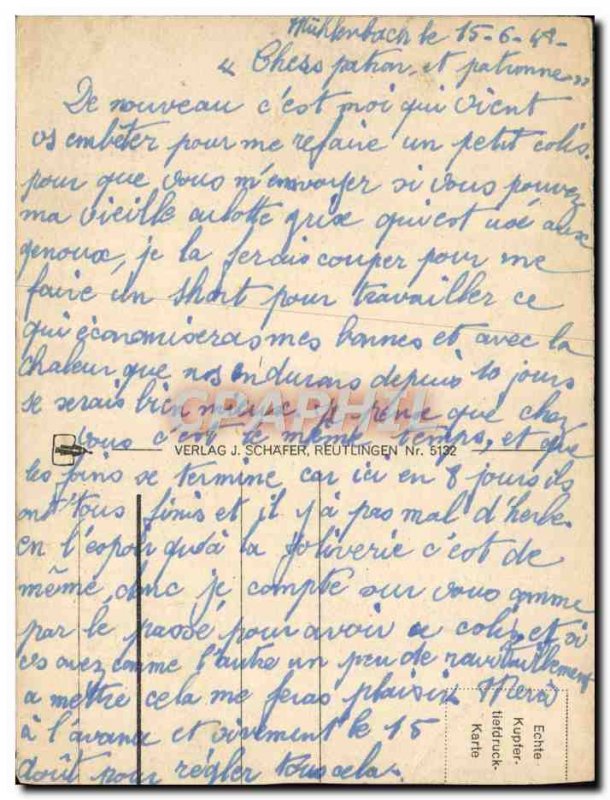 Mühlenbach le 15-6-42-
« Chers patron, et patronne »
De nouveau c'est moi qui vient
vs embêter pour me refaire un petit colis.
pour que vous m'envoyer si vous pouvez
ma vieille culotte grise qui est usé aux
genoux, je la ferais couper pour me
faire un short pour travailler ce
qui économiseras mes bonnes et avec la
chaleur que ns endurons depuis 10 jours
se serais bien mieux je pense que chez
vous c'est le même temps, et que
VERLAG J. SCHÄFER, REUTLINGEN Nr. 5132
les foins se termine car ici en 8 jours ils
ont tous finis et il y a pas mal d'herbe.
en l'espoir qu'à la Joliverie c'est de
même, donc je compte sur vous comme
par le passé pour avoir ce colis, et si
vs avez comme l'autre un peu de ravitaillement
a mettre cela me feras plaisir Merci
à l'avance et vivement le 15
Août pour régler tous cela.
Echte
Kupfer-
tiefdruck-
Karte
CRAPHIL